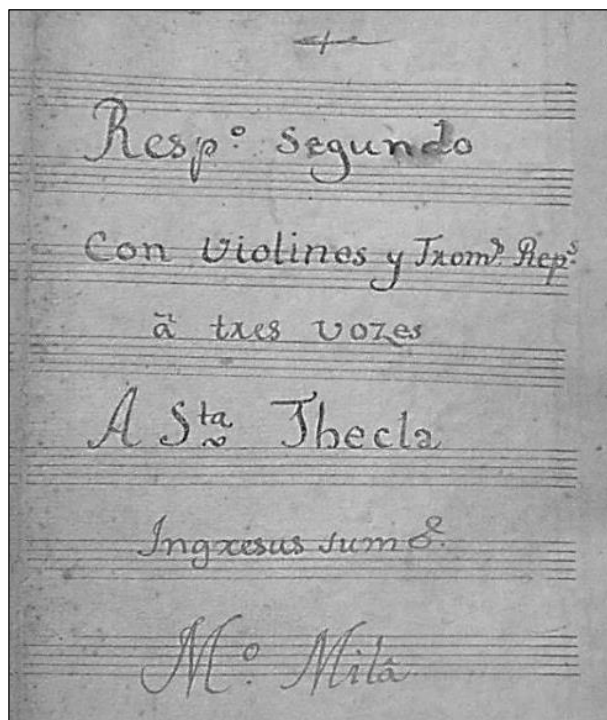 Resp.º segundo
Con violines y Trom.s Rep.s
à tres vozes
A S.ta Thecla
Ingresus sum &.
M.º Milà